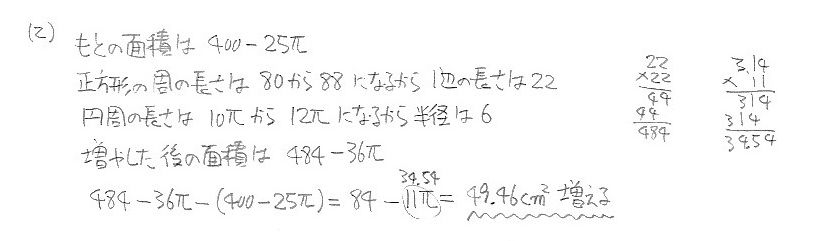 (2)
もとの面積は 400-25π
正方形の周の長さは 80から88になるから1辺の長さは22
円周の長さは 10πから 12πになるから半径は6
増やした後の面積は 484-36π
34.54
484-36π-(400-25π)=84-11π= 49.46cm² 増える
22
×22
44
44
484
3.14
× 11
314
314
34.54